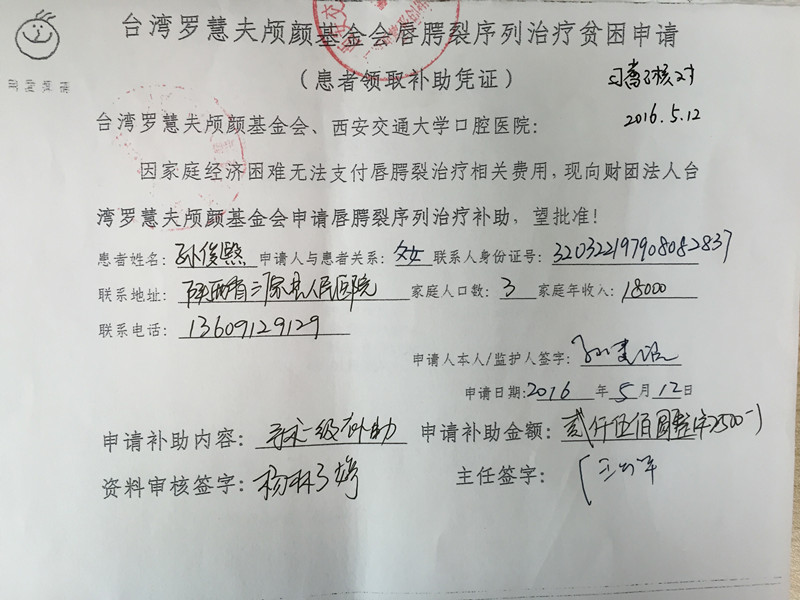 台湾罗慧夫颅颜基金会唇腭裂序列治疗贫困申请
（患者领取补助凭证）
核对
2016.5.12
台湾罗慧夫颅颜基金会、西安交通大学口腔医院：
因家庭经济困难无法支付唇腭裂治疗相关费用，现向财团法人台
湾罗慧夫颅颜基金会申请唇腭裂序列治疗补助，望批准！
患者姓名：孙俊熙 申请人与患者关系：父女 联系人身份证号：320322197908082837
联系地址：陕西省三原县人民医院 家庭人口数：3 家庭年收入：18000
联系电话：13609129129
申请人本人/监护人签字：
申请日期：2016 年 5 月 12 日
申请补助内容：级补助 申请补助金额：贰仟伍佰圆整(￥2500-)
资料审核签字：杨林
主任签字：